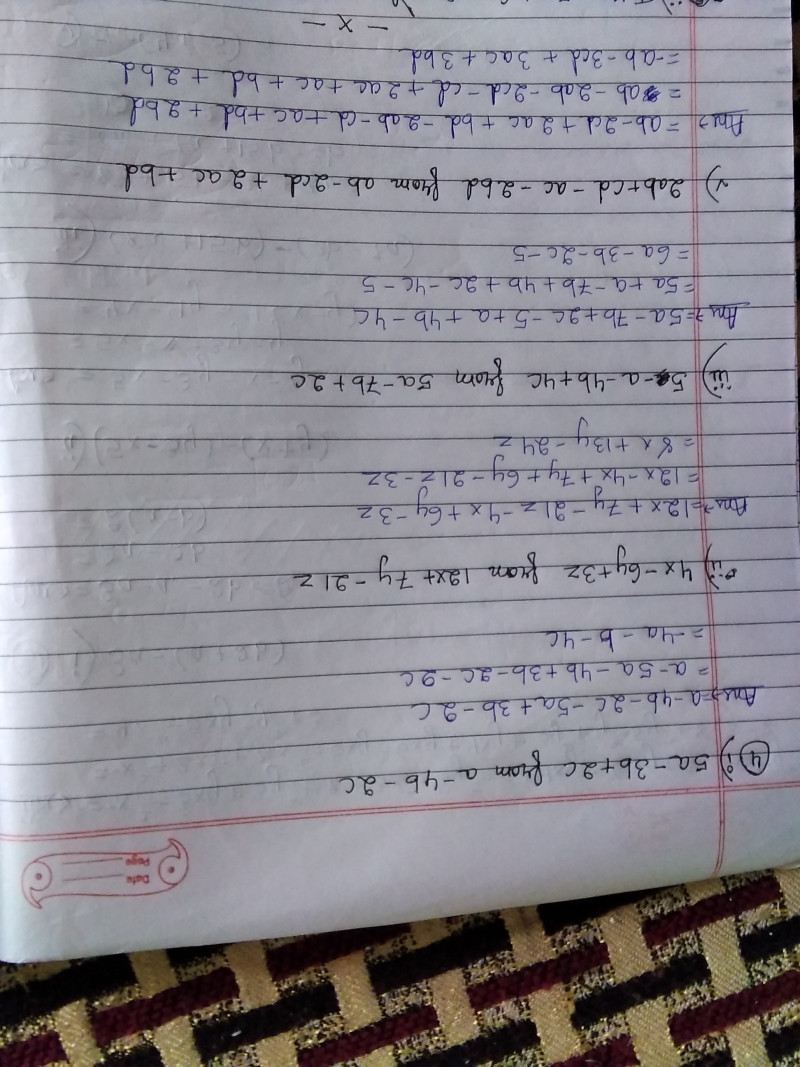 Date
Page
④ i) 5a - 3b + 2c from a - 4b - 2c
Ans→ = a - 4b - 2c - 5a + 3b - 2c
= a - 5a - 4b + 3b - 2c - 2c
= -4a - b - 4c
ii) 4x - 6y + 3z from 12x + 7y - 21z
Ans→ = 12x + 7y - 21z - 4x + 6y - 3z
= 12x - 4x + 7y + 6y - 21z - 3z
= 8x + 13y - 24z
iii) 5 - a - 4b + 4c from 5a - 7b + 2c
Ans→ = 5a - 7b + 2c - 5 + a + 4b - 4c
= 5a + a - 7b + 4b + 2c - 4c - 5
= 6a - 3b - 2c - 5
v) 2ab + cd - ac - 2bd from ab - 2cd + 2ac + bd
Ans→ = ab - 2cd + 2ac + bd - 2ab - cd + ac + bd + 2bd
= ab - 2ab - 2cd - cd + 2ac + ac + bd + 2bd
= -ab - 3cd + 3ac + 3bd
- x -